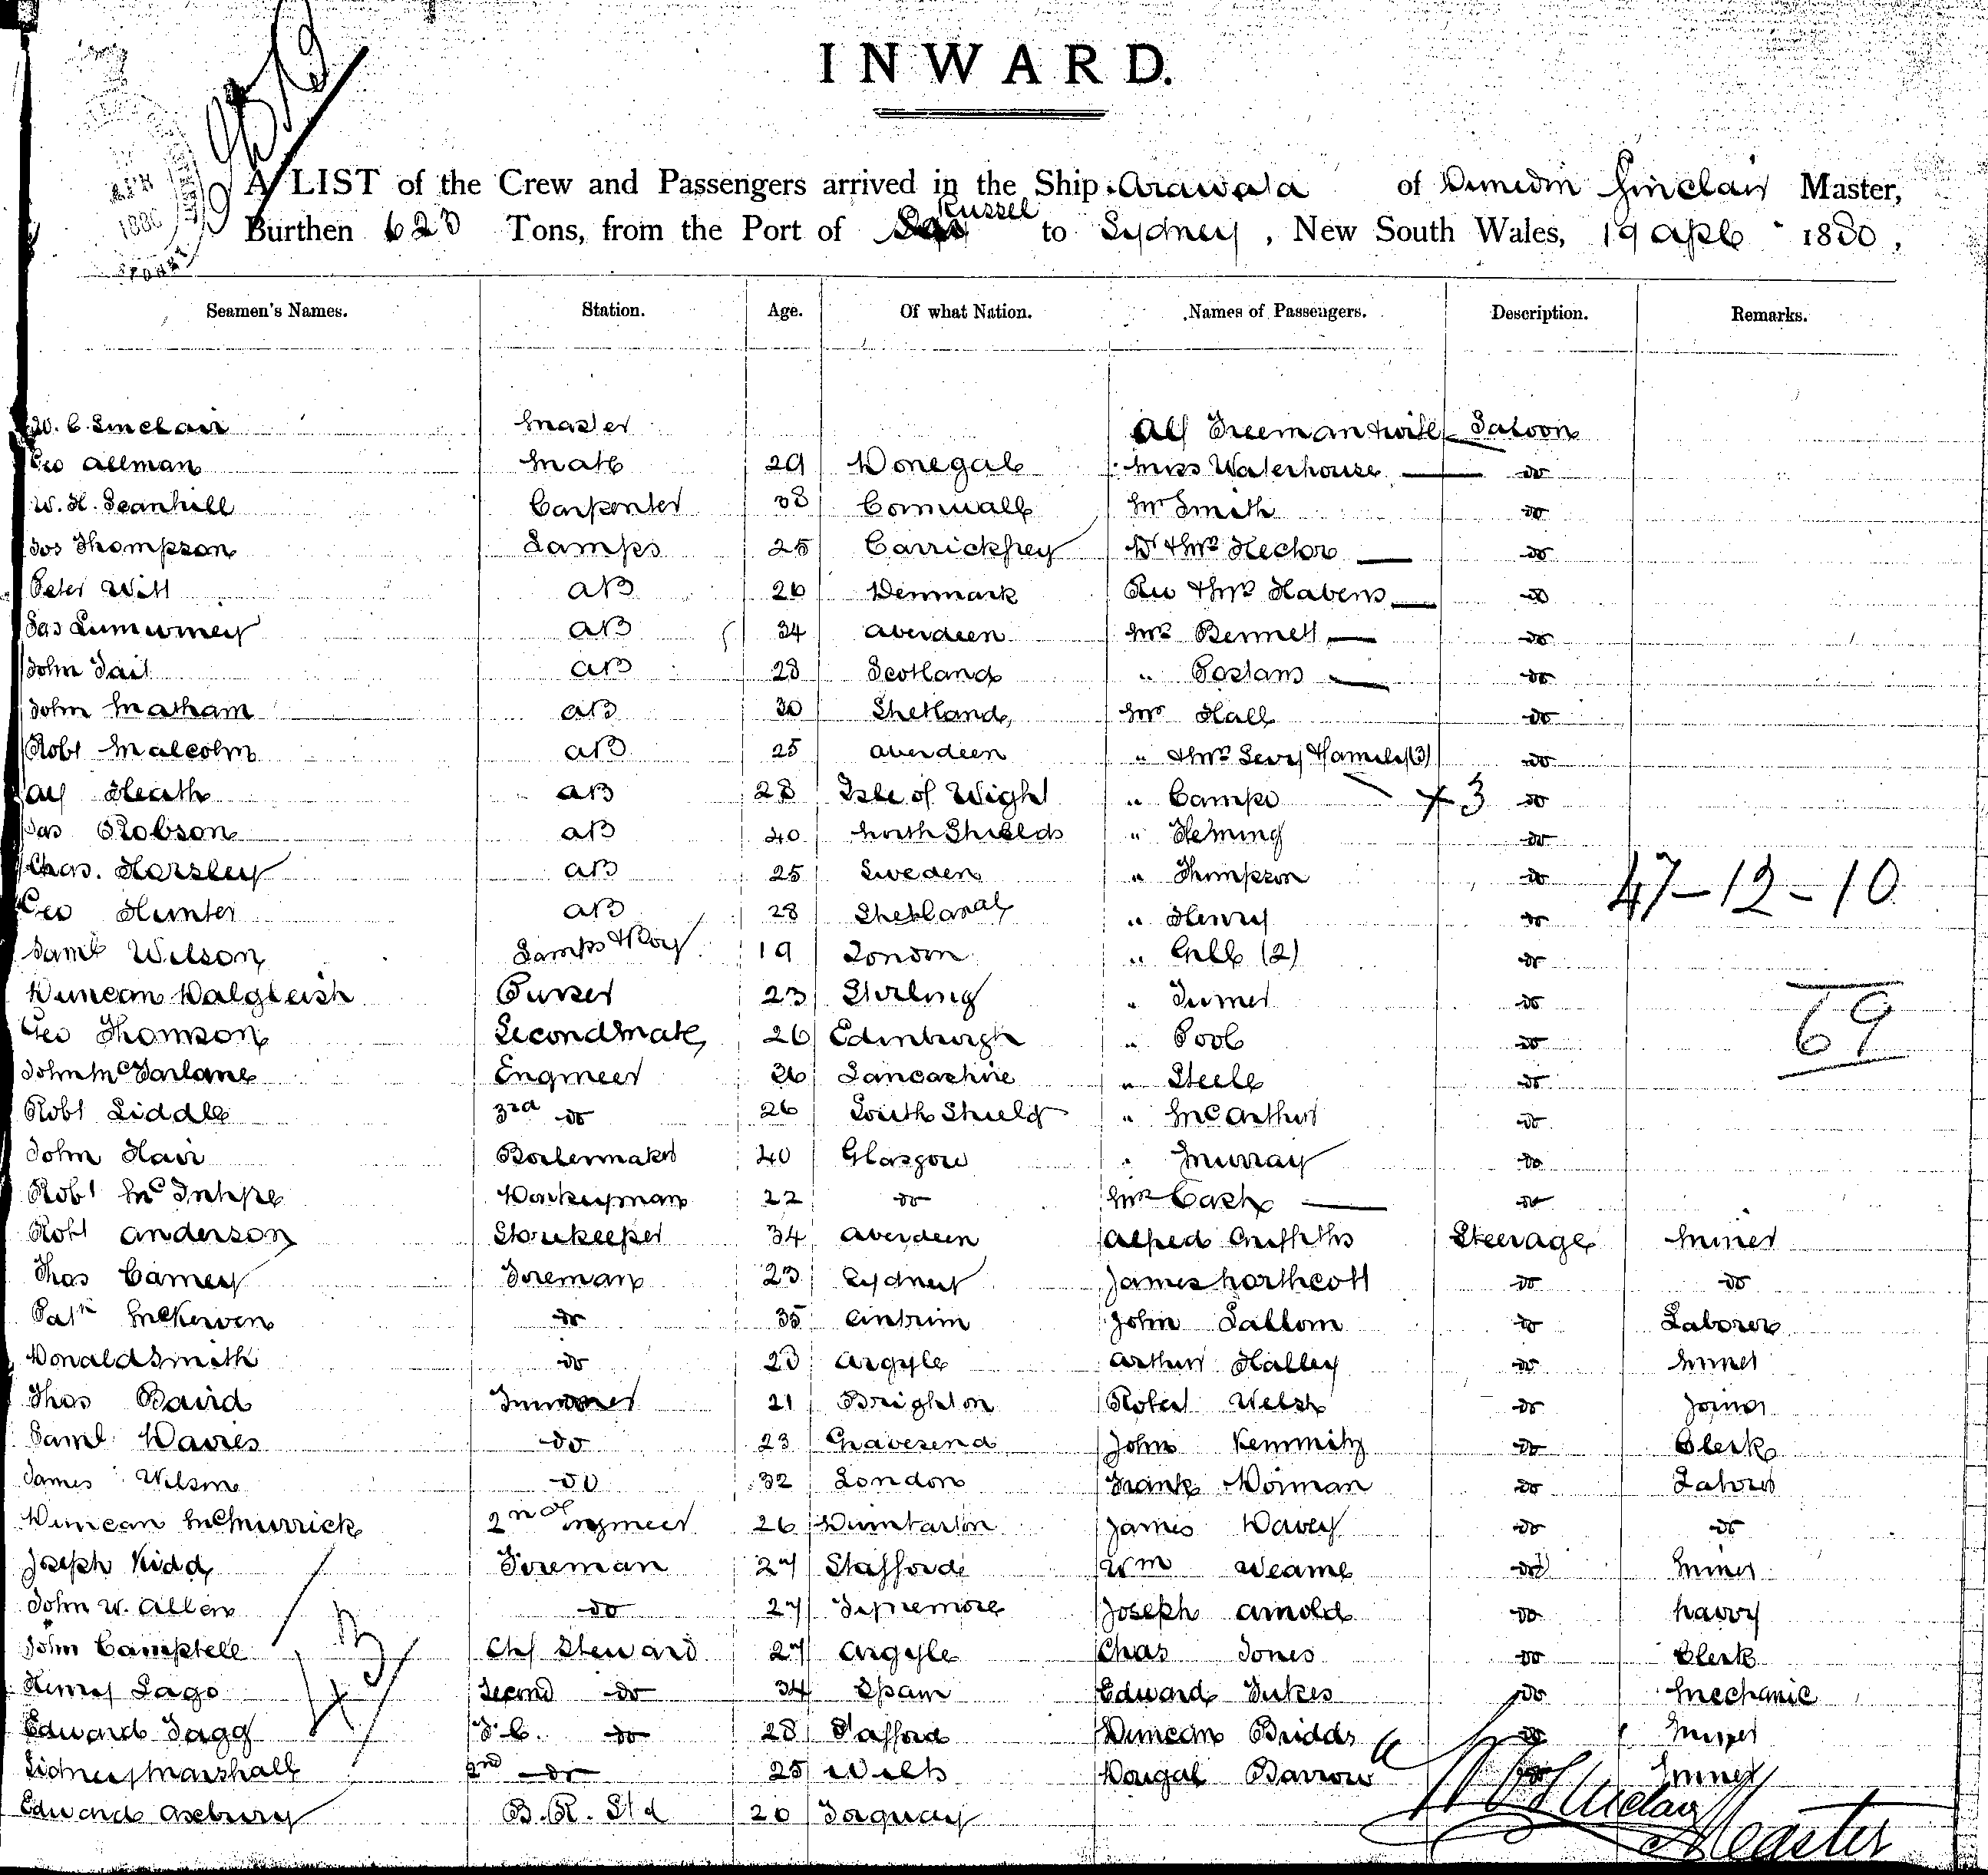 INWARD.
A LIST of the Crew and Passengers arrived in the Ship Arawata of Dunedin Sinclair Master,
Russel
Burthen 623 Tons, from the Port of to Sydney, New South Wales, 19 Apl 1880,
Seamen's Names. Station. Age. Of what Nation. Names of Passengers. Description. Remarks.
W. C. Sinclair Master Alf Freeman & wife Saloon
Geo Allman Mate 29 Donegal Miss Waterhouse do
W. H. Carpenter 38 Cornwall Mr Smith do
Jos Thompson Lamps 25 Carrickfrey Dr & Mrs Hector do
Peter Witt AB 26 Denmark Rev & Mrs Habens do
Jas AB 34 Aberdeen Mrs Bennett do
John Tait AB 28 Scotland " do
John Matham AB 30 Shetland Mr Hall do
Robt Malcolm AB 25 Aberdeen " & Mrs Levy & Family (3) do
Alf Heath AB 28 Isle of Wight " Campe + 3 do
Jas Robson AB 40 North Shields " Fleming do
Chas. Horsley AB 25 Sweden " Thompson do
47-12-10
Geo Hunter AB 28 Shetland " Henry do
Saml Wilson Lamps & Boy 19 London " (2) do
Duncan Dalgleish Purser 23 Stirling " Turner do
69
Geo Thomson Second Mate 26 Edinburgh " Pool do
John McFarlane Engineer 36 Lancashire " Steele do
Robt Liddle 3rd do 26 South Shield " McArthur do
John Hair Boilermaker 40 Glasgow " Murray do
Robt Donkeyman 22 do Mrs Cash do
Robt Anderson Storekeeper 34 Aberdeen Alfred Griffiths Steerage Miner
Thos Carney Fireman 23 Sydney James Northcott do do
Patk McKerven do 35 Antrim John Lallom do Laborer
Donald Smith do 23 Argyle Arthur Halley do Miner
Thos Baird Trimmer 21 Brighton Robert Welsh do Joiner
Saml Davies do 23 Gravesend John Kemmity do Clerk
James Wilson do 32 London Frank Noiman do Laborer
Duncan McMurrick 2nd Engineer 26 Dumbarton James Davey do do
Joseph Kidd Fireman 27 Stafford Wm Wearne do Miner
John W. Allen do 27 Joseph Arnold do Navvy
John Campbell Chf Steward 27 Argyle Chas Jones do Clerk
Henry Lago Second do 34 Spain Edward Jukes do Mechanic
Edward Tagg F.C. do 28 Stafford Duncan Bridds do Miner
Sidney Marshall 2nd do 25 Wilts Dougal Barrow do Miner
Edward Axebury B.R. Std 20 Torquay
W C Sinclair
Master